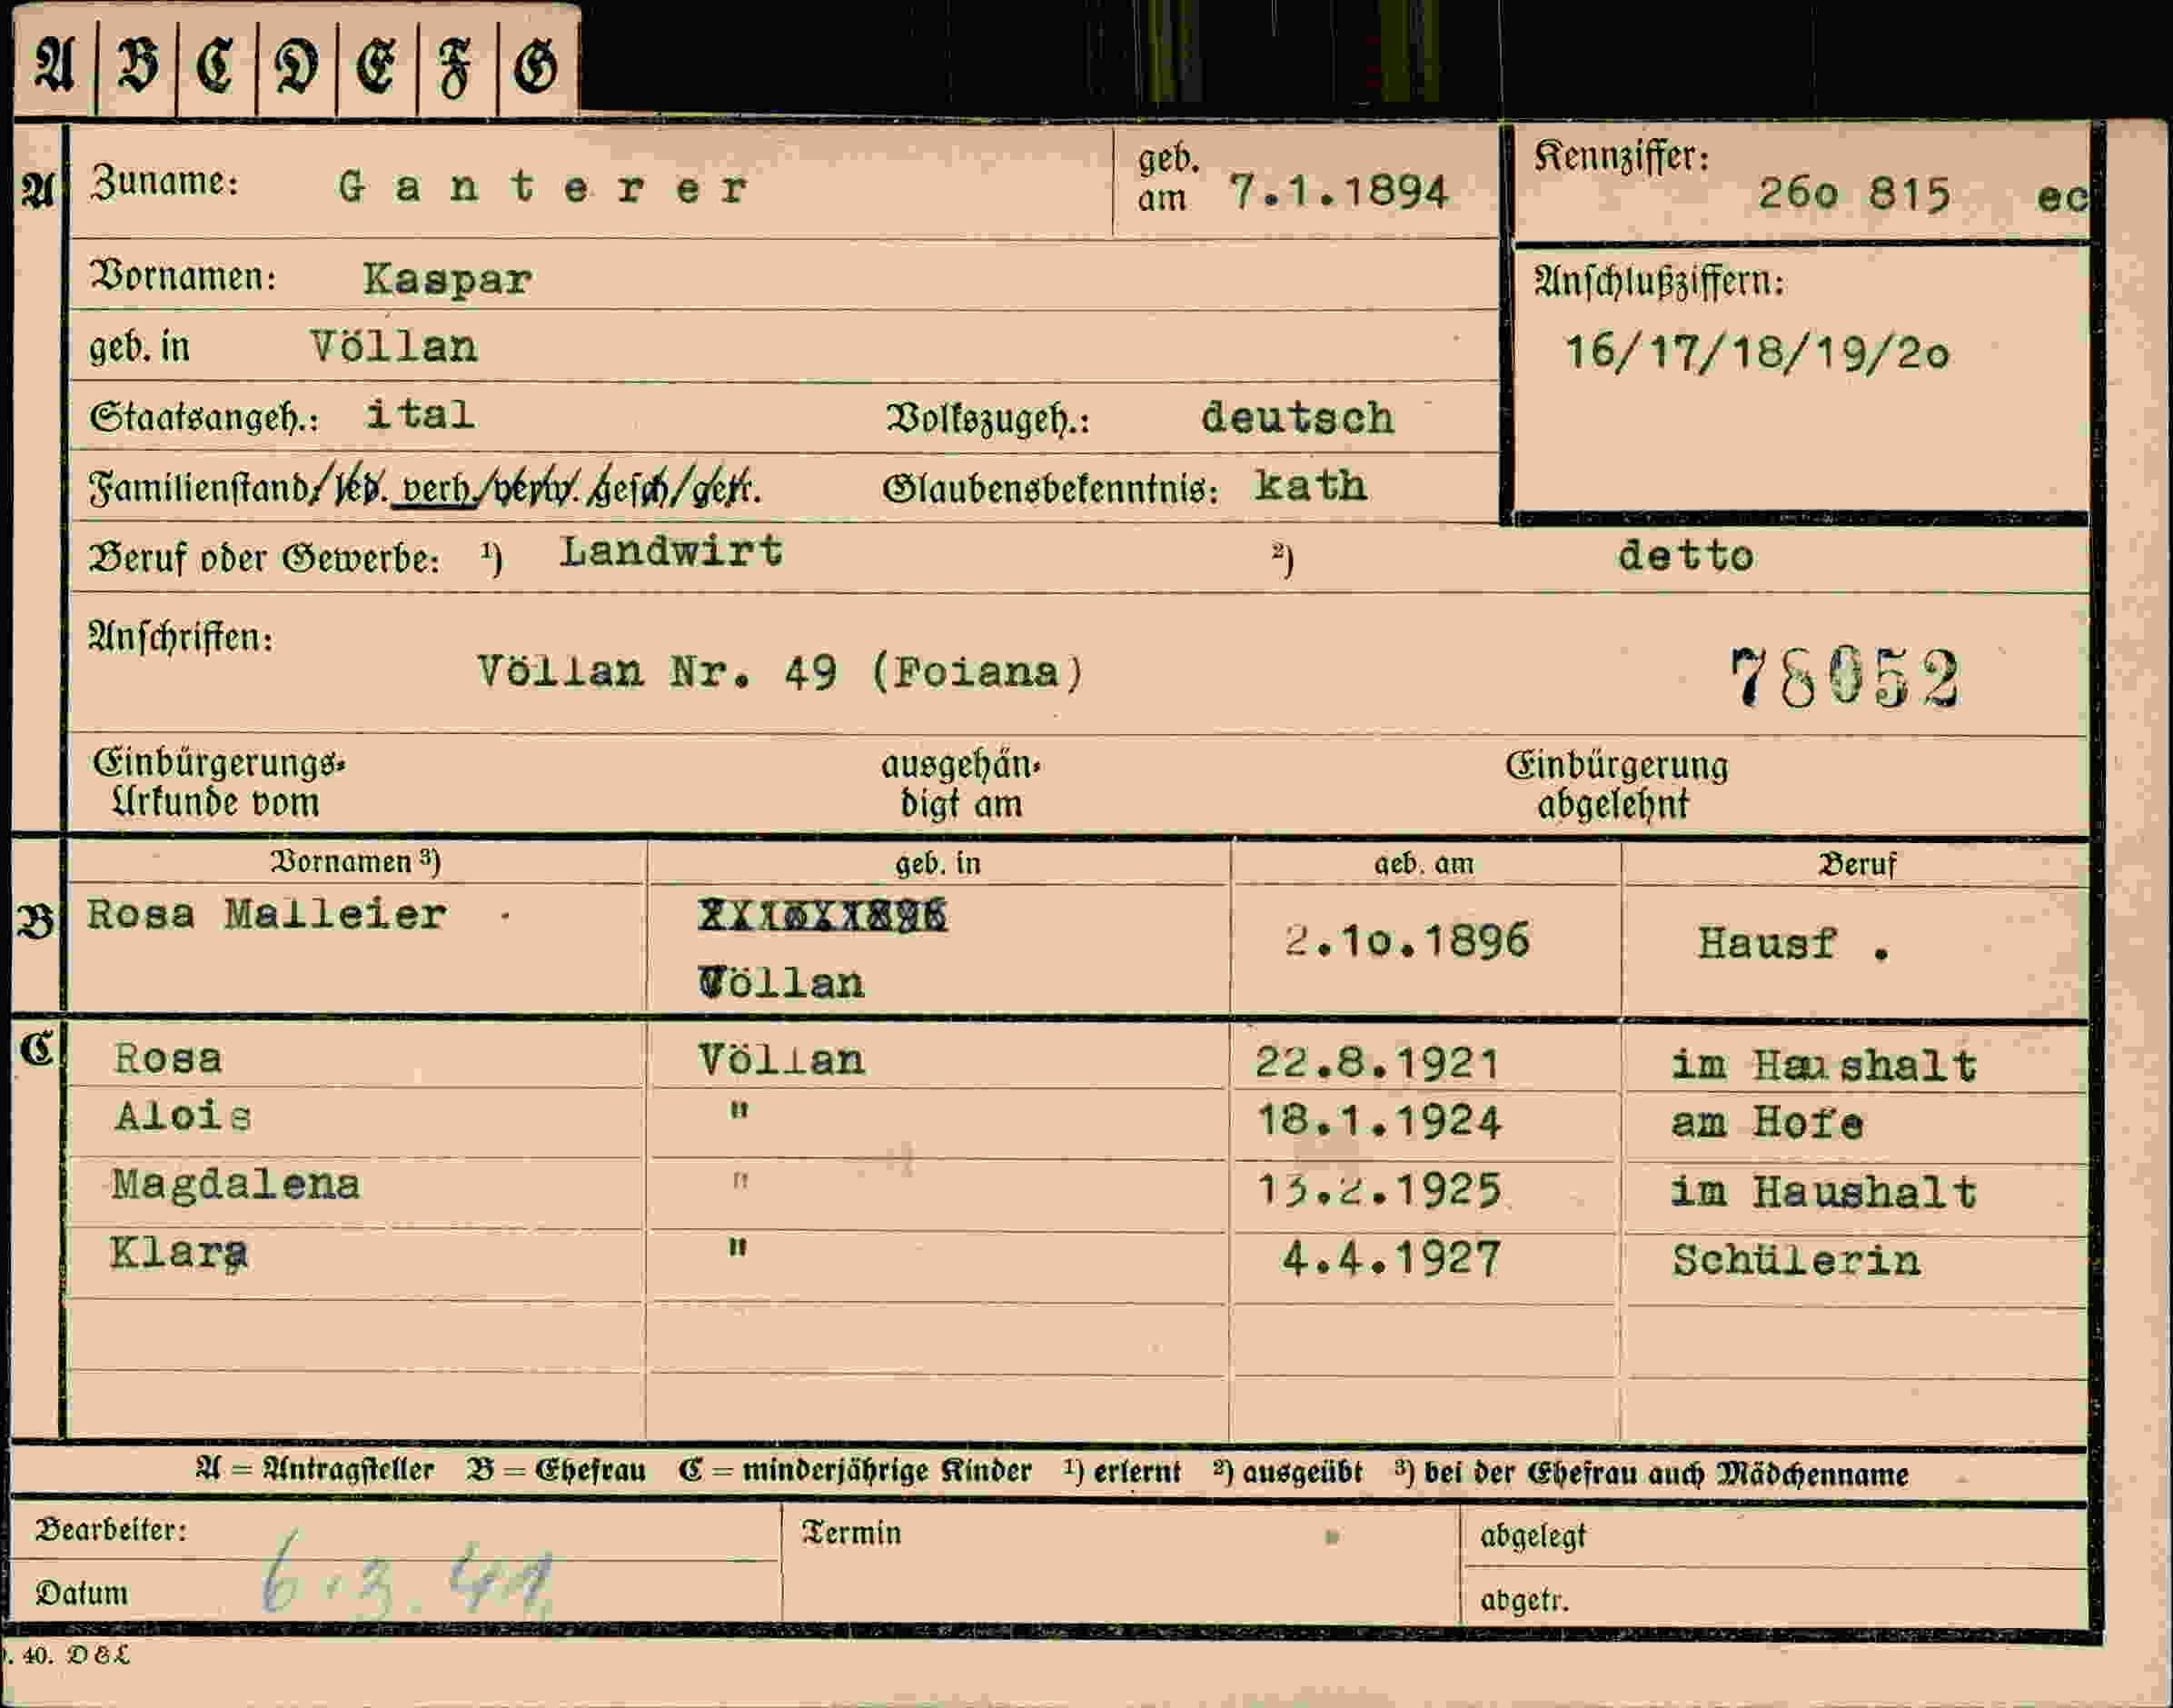 A B C D E F G
A Zuname: Ganterer geb. am 7.1.1894 Kennziffer: 26o 815 ec
Vornamen: Kaspar Anschlußziffern:
geb. in Völlan 16/17/18/19/2o
Staatsangeh.: ital Volkszugeh.: deutsch
Familienstand/led. verh./verw. gesch/getr. Glaubensbekenntnis: kath
Beruf oder Gewerbe: ¹) Landwirt ²) detto
Anschriften:
Völlan Nr. 49 (Foiana) 78052
Einbürgerungs- ausgehän- Einbürgerung
Urkunde vom digt am abgelehnt
Vornamen ³) geb. in geb. am Beruf
B Rosa Malleier
Völlan 2.1o.1896 Hausf .
C Rosa Völlan 22.8.1921 im Haushalt
Alois " 18.1.1924 am Hofe
Magdalena " 13.2.1925 im Haushalt
Klara " 4.4.1927 Schülerin
A = Antragsteller B = Ehefrau C = minderjährige Kinder ¹) erlernt ²) ausgeübt ³) bei der Ehefrau auch Mädchenname
Bearbeiter: Termin abgelegt
Datum 6.3.41 abgetr.
. 40. D&L